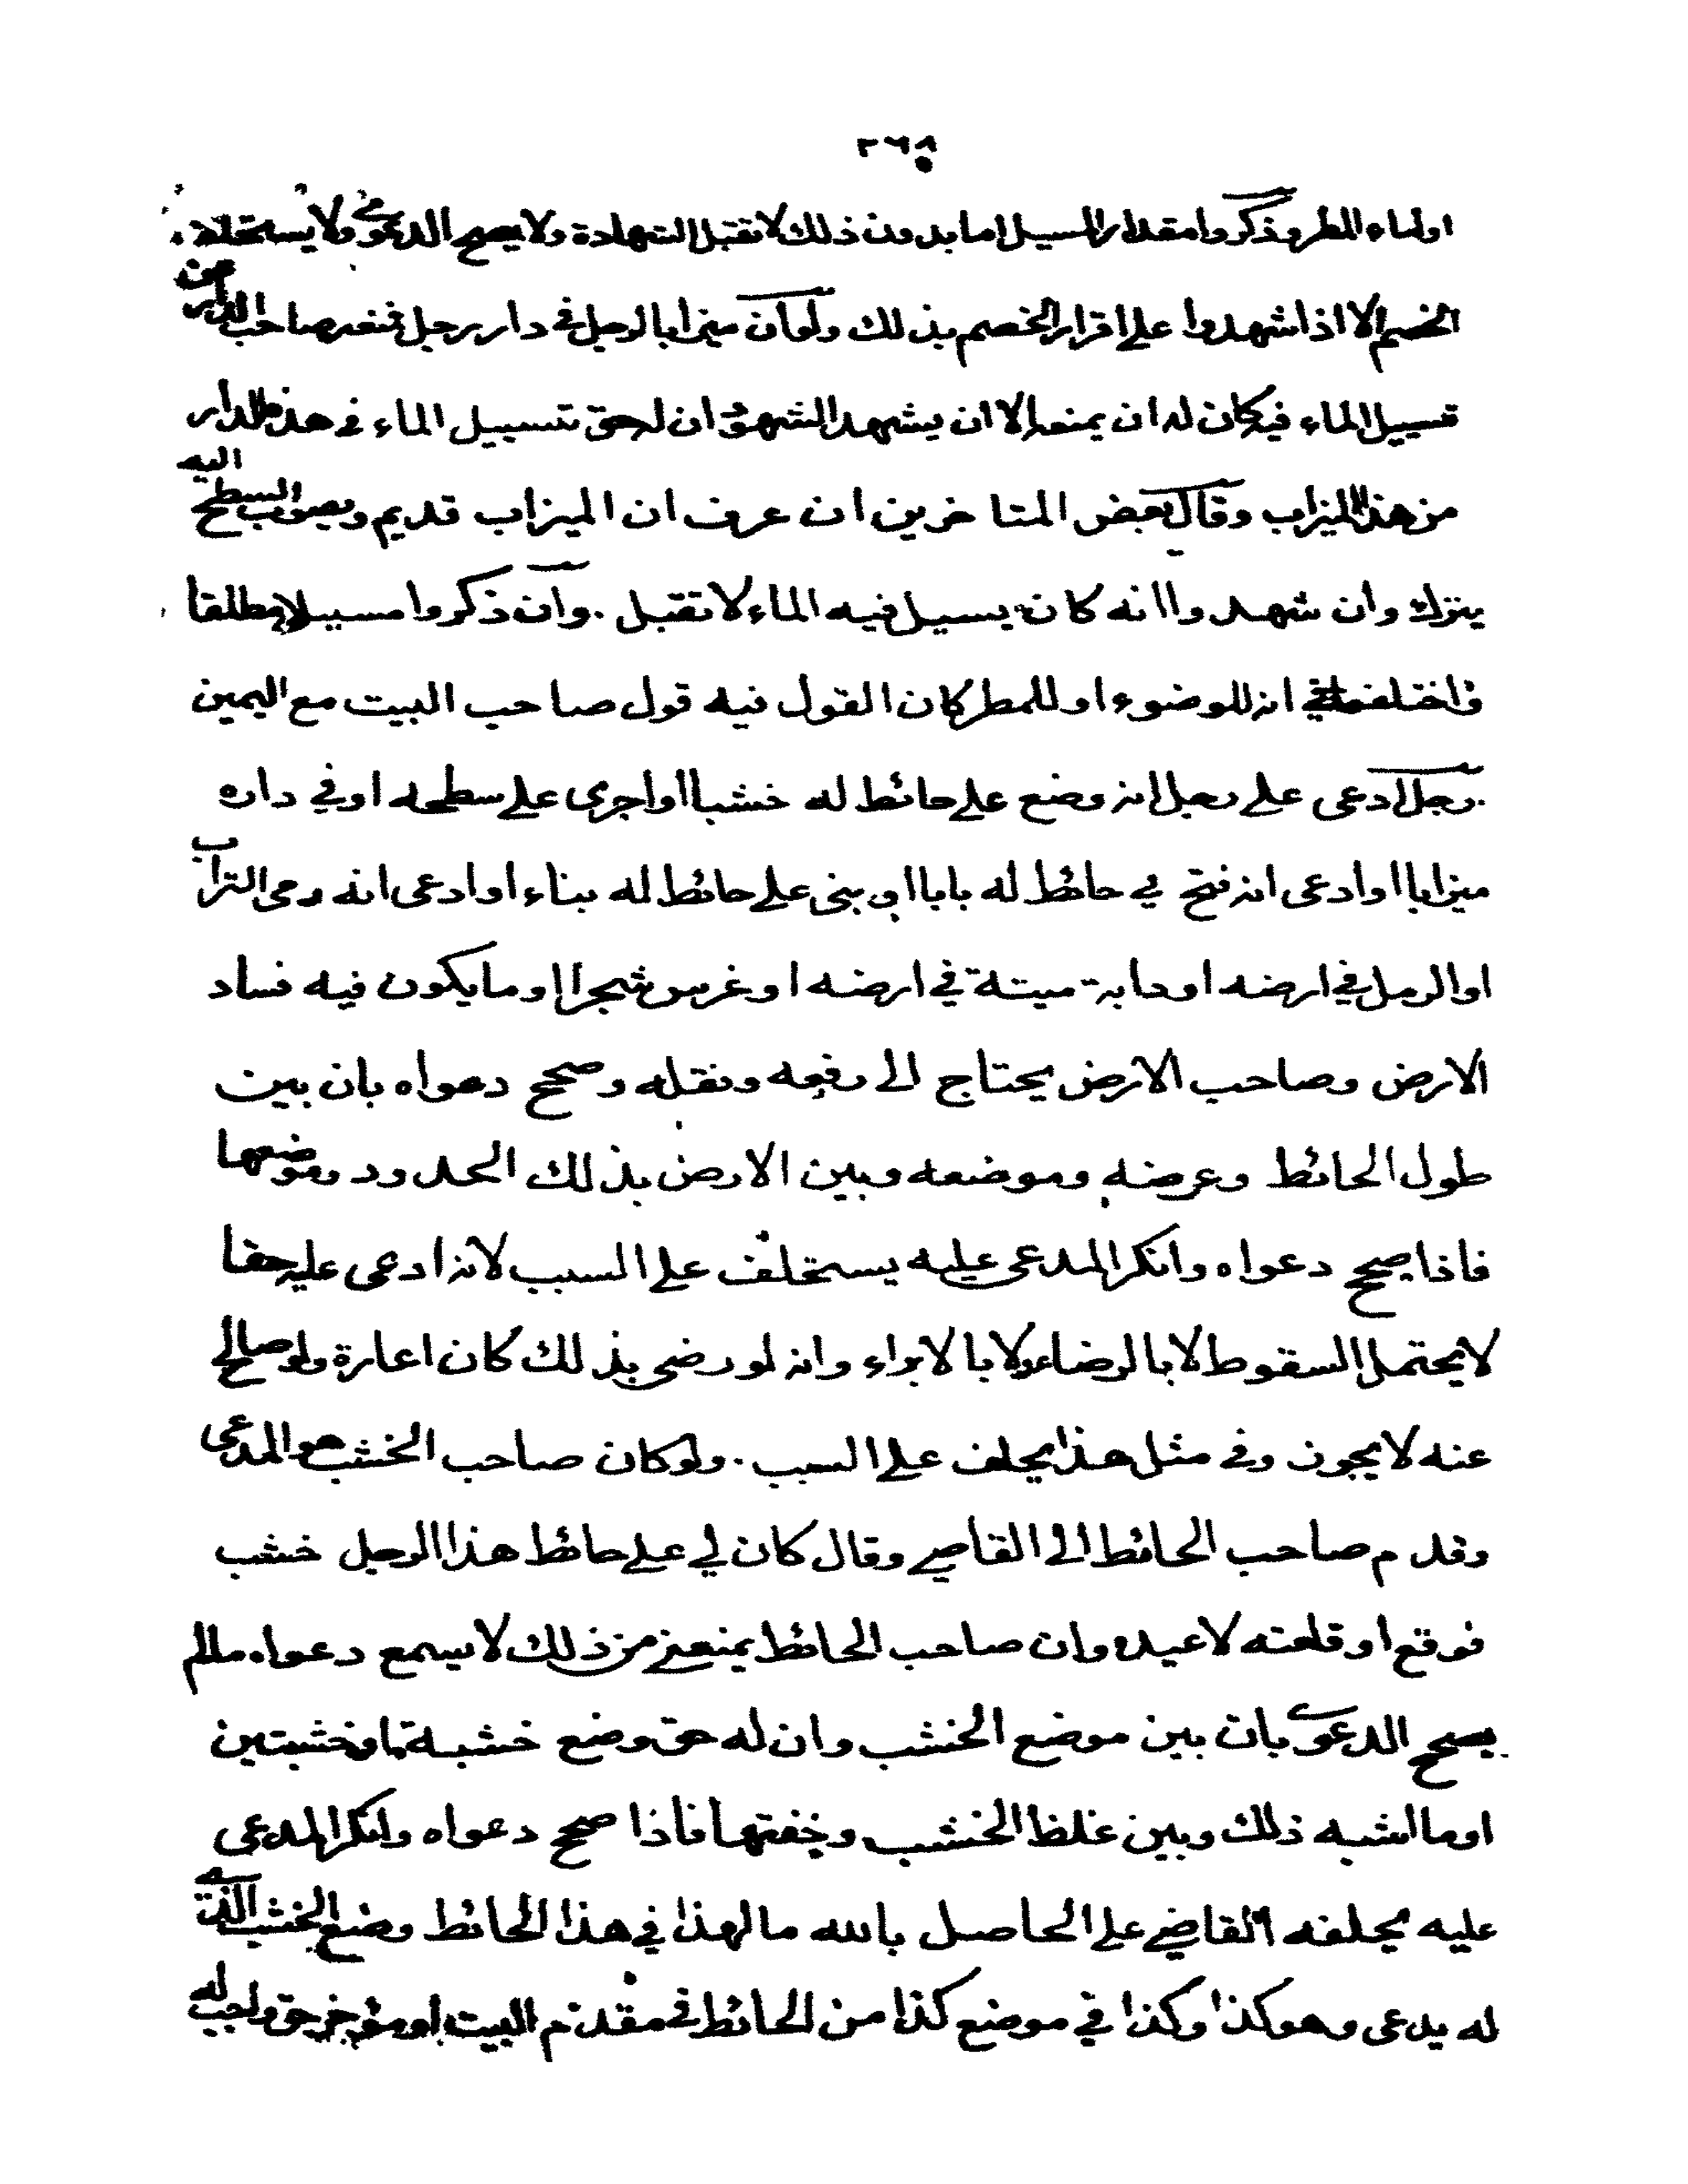 ٢٦٨
او لماء المطر وذكروا مقدار المسيل اما بدون ذلك لا تقبل الشهادة ولا يصح الدعوى ولا يستحلف
الخصم الا اذا شهدوا على اقرار الخصم بذلك ولو ان ميزابا لرجل في دار رجل فمنعه صاحب الدار من
تسييل الماء فيه كان له ان يمنعه الا ان يشهد الشهود ان له حق تسييل الماء في هذه الدار
من هذا الميزاب وقال بعض المتاخرين ان عرف ان الميزاب قديم وتصويب السطح اليه
يترك وان شهدوا انه كان يسيل فيه الماء لا تقبل . وان ذكروا مسيلا مطلقا
فاختلفا في انه للوضوء او للمطر كان القول فيه قول صاحب البيت مع اليمين
رجل ادعى على رجل انه وضع على حائط له خشبا او اجرى على سطحه او في داره
ميزابا او ادعى انه فتح في حائط له بابا او بنى على حائط له بناء او ادعى انه رمى التراب
او الرمل في ارضه او دابة ميتة في ارضه او غرس شجرا او ما يكون فيه فساد
الارض وصاحب الارض يحتاج الى رفعه ونقله وصحح دعواه بان بين
طول الحائط وعرضه وموضعه وبين الارض بذلك الحدود وموضعها
فاذا صحح دعواه وانكر المدعى عليه يستحلف على السبب لانه ادعى عليه حقا
لا يحتمل السقوط لا بالرضاء ولا بالابراء وانه لو رضى بذلك كان اعارة ولو صالح
عنه لا يجوز وفي مثل هذا يحلف على السبب . ولو كان صاحب الخشب هو المدعى
وقدم صاحب الحائط الى القاضي وقال كان لي على حائط هذا الرجل خشب
فوقع او قلعته لاعيده وان صاحب الحائط يمنعني من ذلك لا يسمع دعواه ما لم
يصحح الدعوى بان بين موضع الخشب وان له حق وضع خشبة او خشبتين
او ما اشبه ذلك وبين غلظ الخشب وخفتها فاذا صحح دعواه وانكر المدعى
عليه يحلفه القاضي على الحاصل بالله ما لهذا في هذا الحائط وضع الخشب الذي
له يدعى وهو كذا وكذا في موضع كذا من الحائط في مقدم البيت او مؤخره حق واجب له